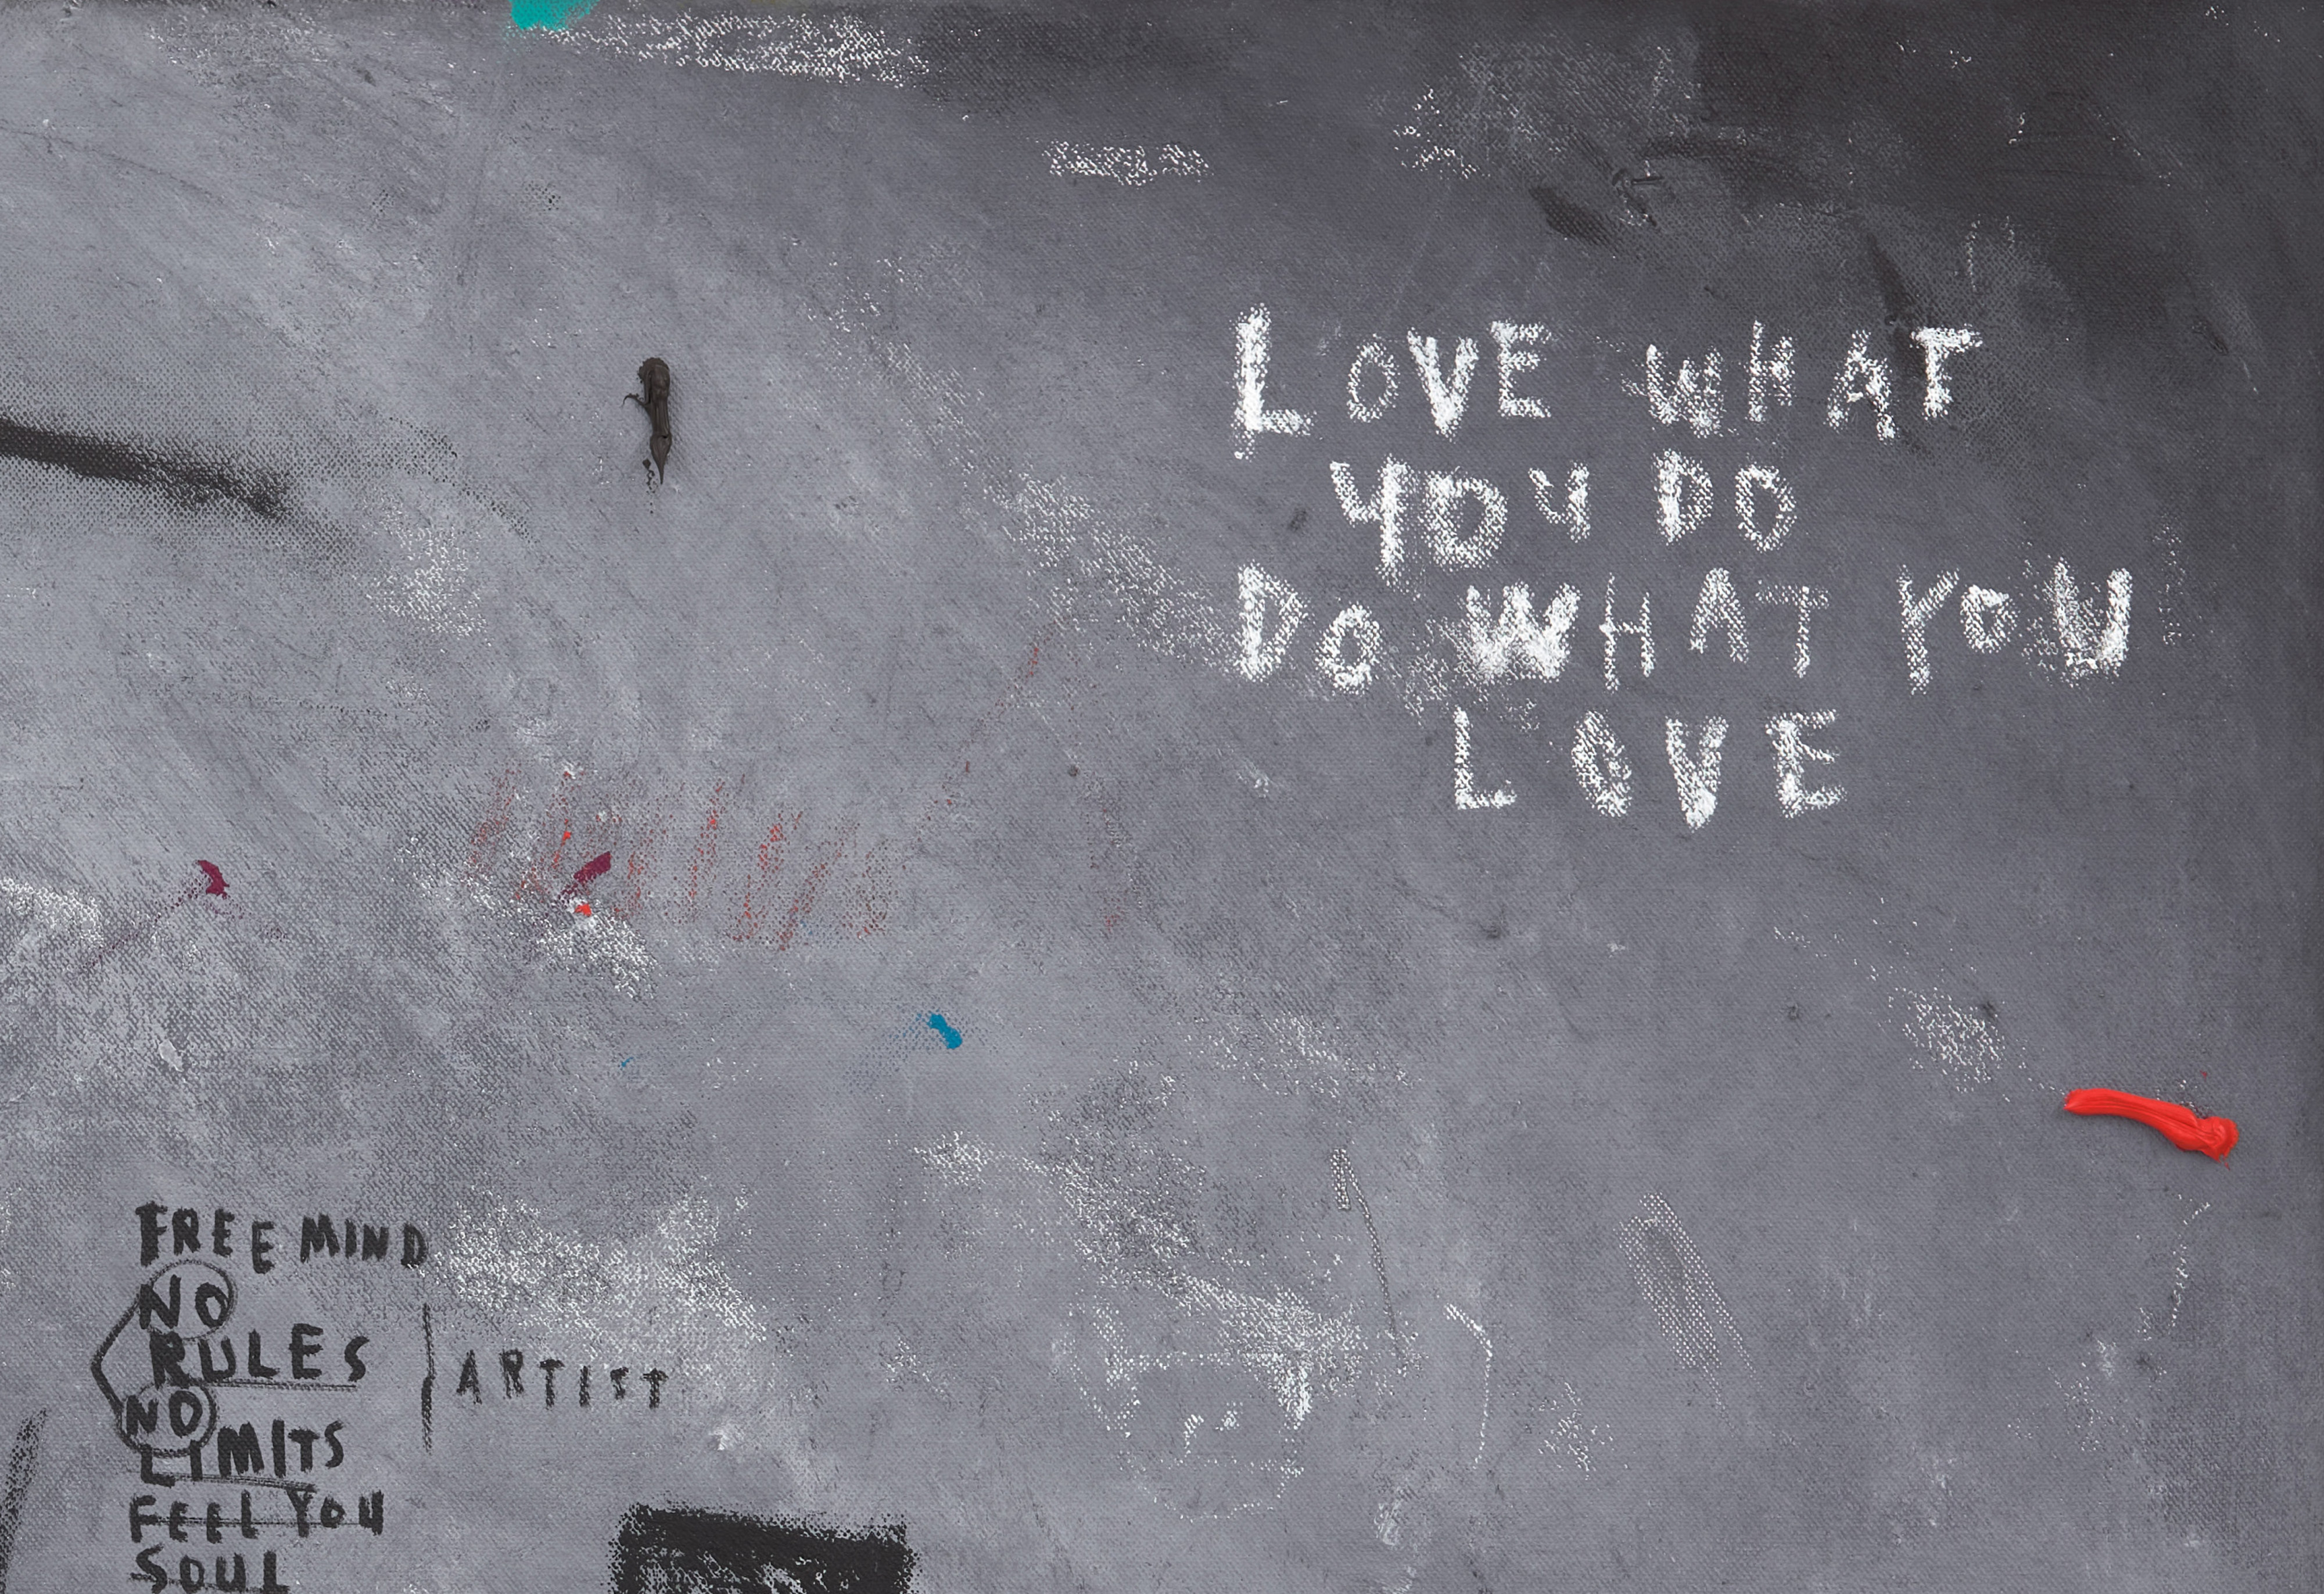 LOVE WHAT
YOU DO
DO WHAT YOU
LOVE
FREE MIND
NO
RULES
ARTIST
NO
LIMITS
FEEL YOU
SOUL